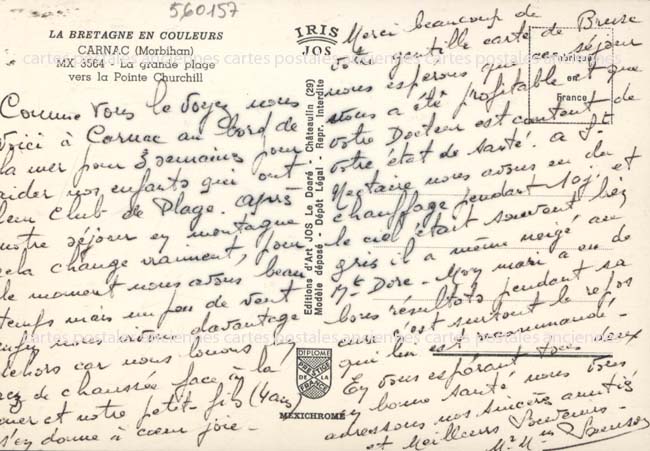 560157
LA BRETAGNE EN COULEURS
CARNAC (Morbihan)
MX 8564 - La grande plage
vers la Pointe Churchill
IRIS
JOS
Comme vous le voyez nous
voici à Carnac au bord de
la mer pour 3 semaines pour
aider nos enfants qui ont
leur Club de Plage. après
notre séjour en montagne
cela change vraiment, pour
le moment nous avons beau
temps mais un peu de vent
nous davantage
dehors car nous louons
rez de chaussée face à la
mer et notre petit-fils (4 ans)
s'en donne à cœur joie -
Editions d'Art JOS Le Doaré - Châteaulin (29)
Modèle déposé - Dépôt Légal - Repr. Interdite
DIPLOME
PRESTIGE
DE LA
FRANCE
MEXICHROME
Merci beaucoup de
votre gentille carte de
nous espérons que ce séjour
vous a été profitable et que
votre Docteur est content de
votre état de santé. a St
Nectaire nous avons eu du
chauffage pendant 10j. et
le ciel était souvent bien
gris il a même neigé au
Mt Dore - Mon mari a eu de
bons résultats pendant sa
cure c'est surtout le repos
qui lui est recommandé -
En vous espérant tous deux
en bonne santé nous vous
adressons nos sincères amitiés
et Meilleurs Souvenirs -
Mr Mme
en
France
cartes postales anciennes cartes postales anciennes cartes postales anciennes
cartes postales anciennes cartes postales anciennes cartes postales anciennes
cartes postales anciennes cartes postales anciennes cartes postales anciennes